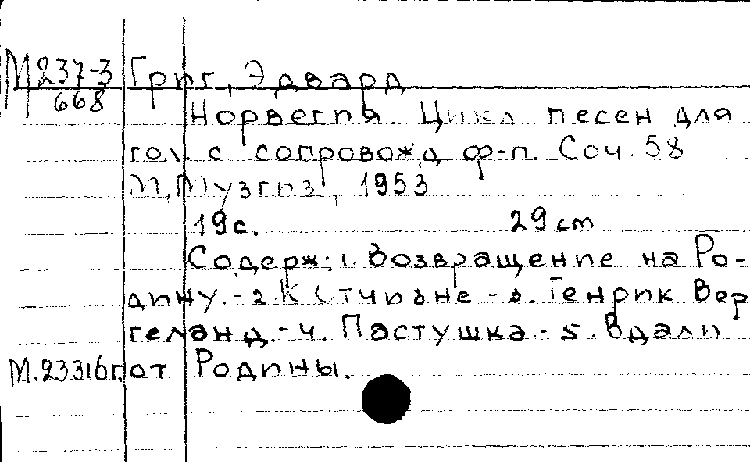 М 237-3 Григ, Эдвард
668
Норвегия. Цикл песен для
гол. с сопровожд. ф-п. Соч. 58
М., Музгиз, 1953
19 с. 29 cm
Содерж: 1. Возвращение на Ро-
дину.- 2. К - 3. Генрик Вер
геланд.- 4. Пастушка.- 5. Вдали
М.23316г. от Родины.